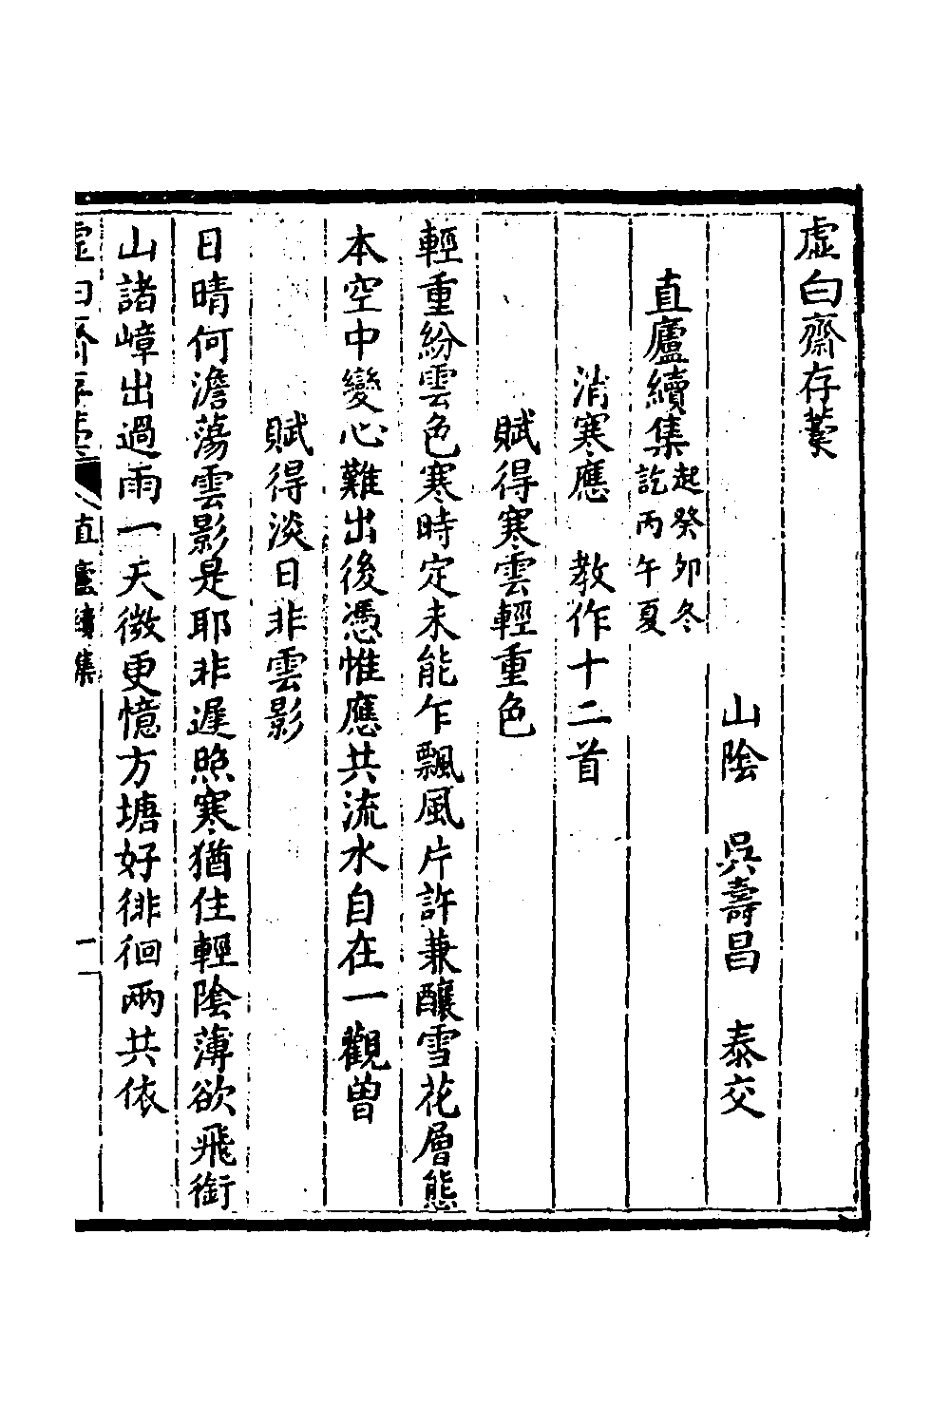 虛白齋存藁
山陰　吳壽昌　泰交
直廬續集起癸卯冬訖丙午夏
消寒應　教作十二首
賦得寒雲輕重色
輕重紛雲色寒時定未能乍飄風片許兼釀雪花層態
本空中變心難出後憑惟應共流水自在一觀曾
賦得淡日非雲影
日晴何澹蕩雲影是耶非遲照寒猶住輕陰薄欲飛銜
山諸嶂出過雨一天微更憶方塘好徘徊兩共依
虛白齋存藁　直廬續集　一